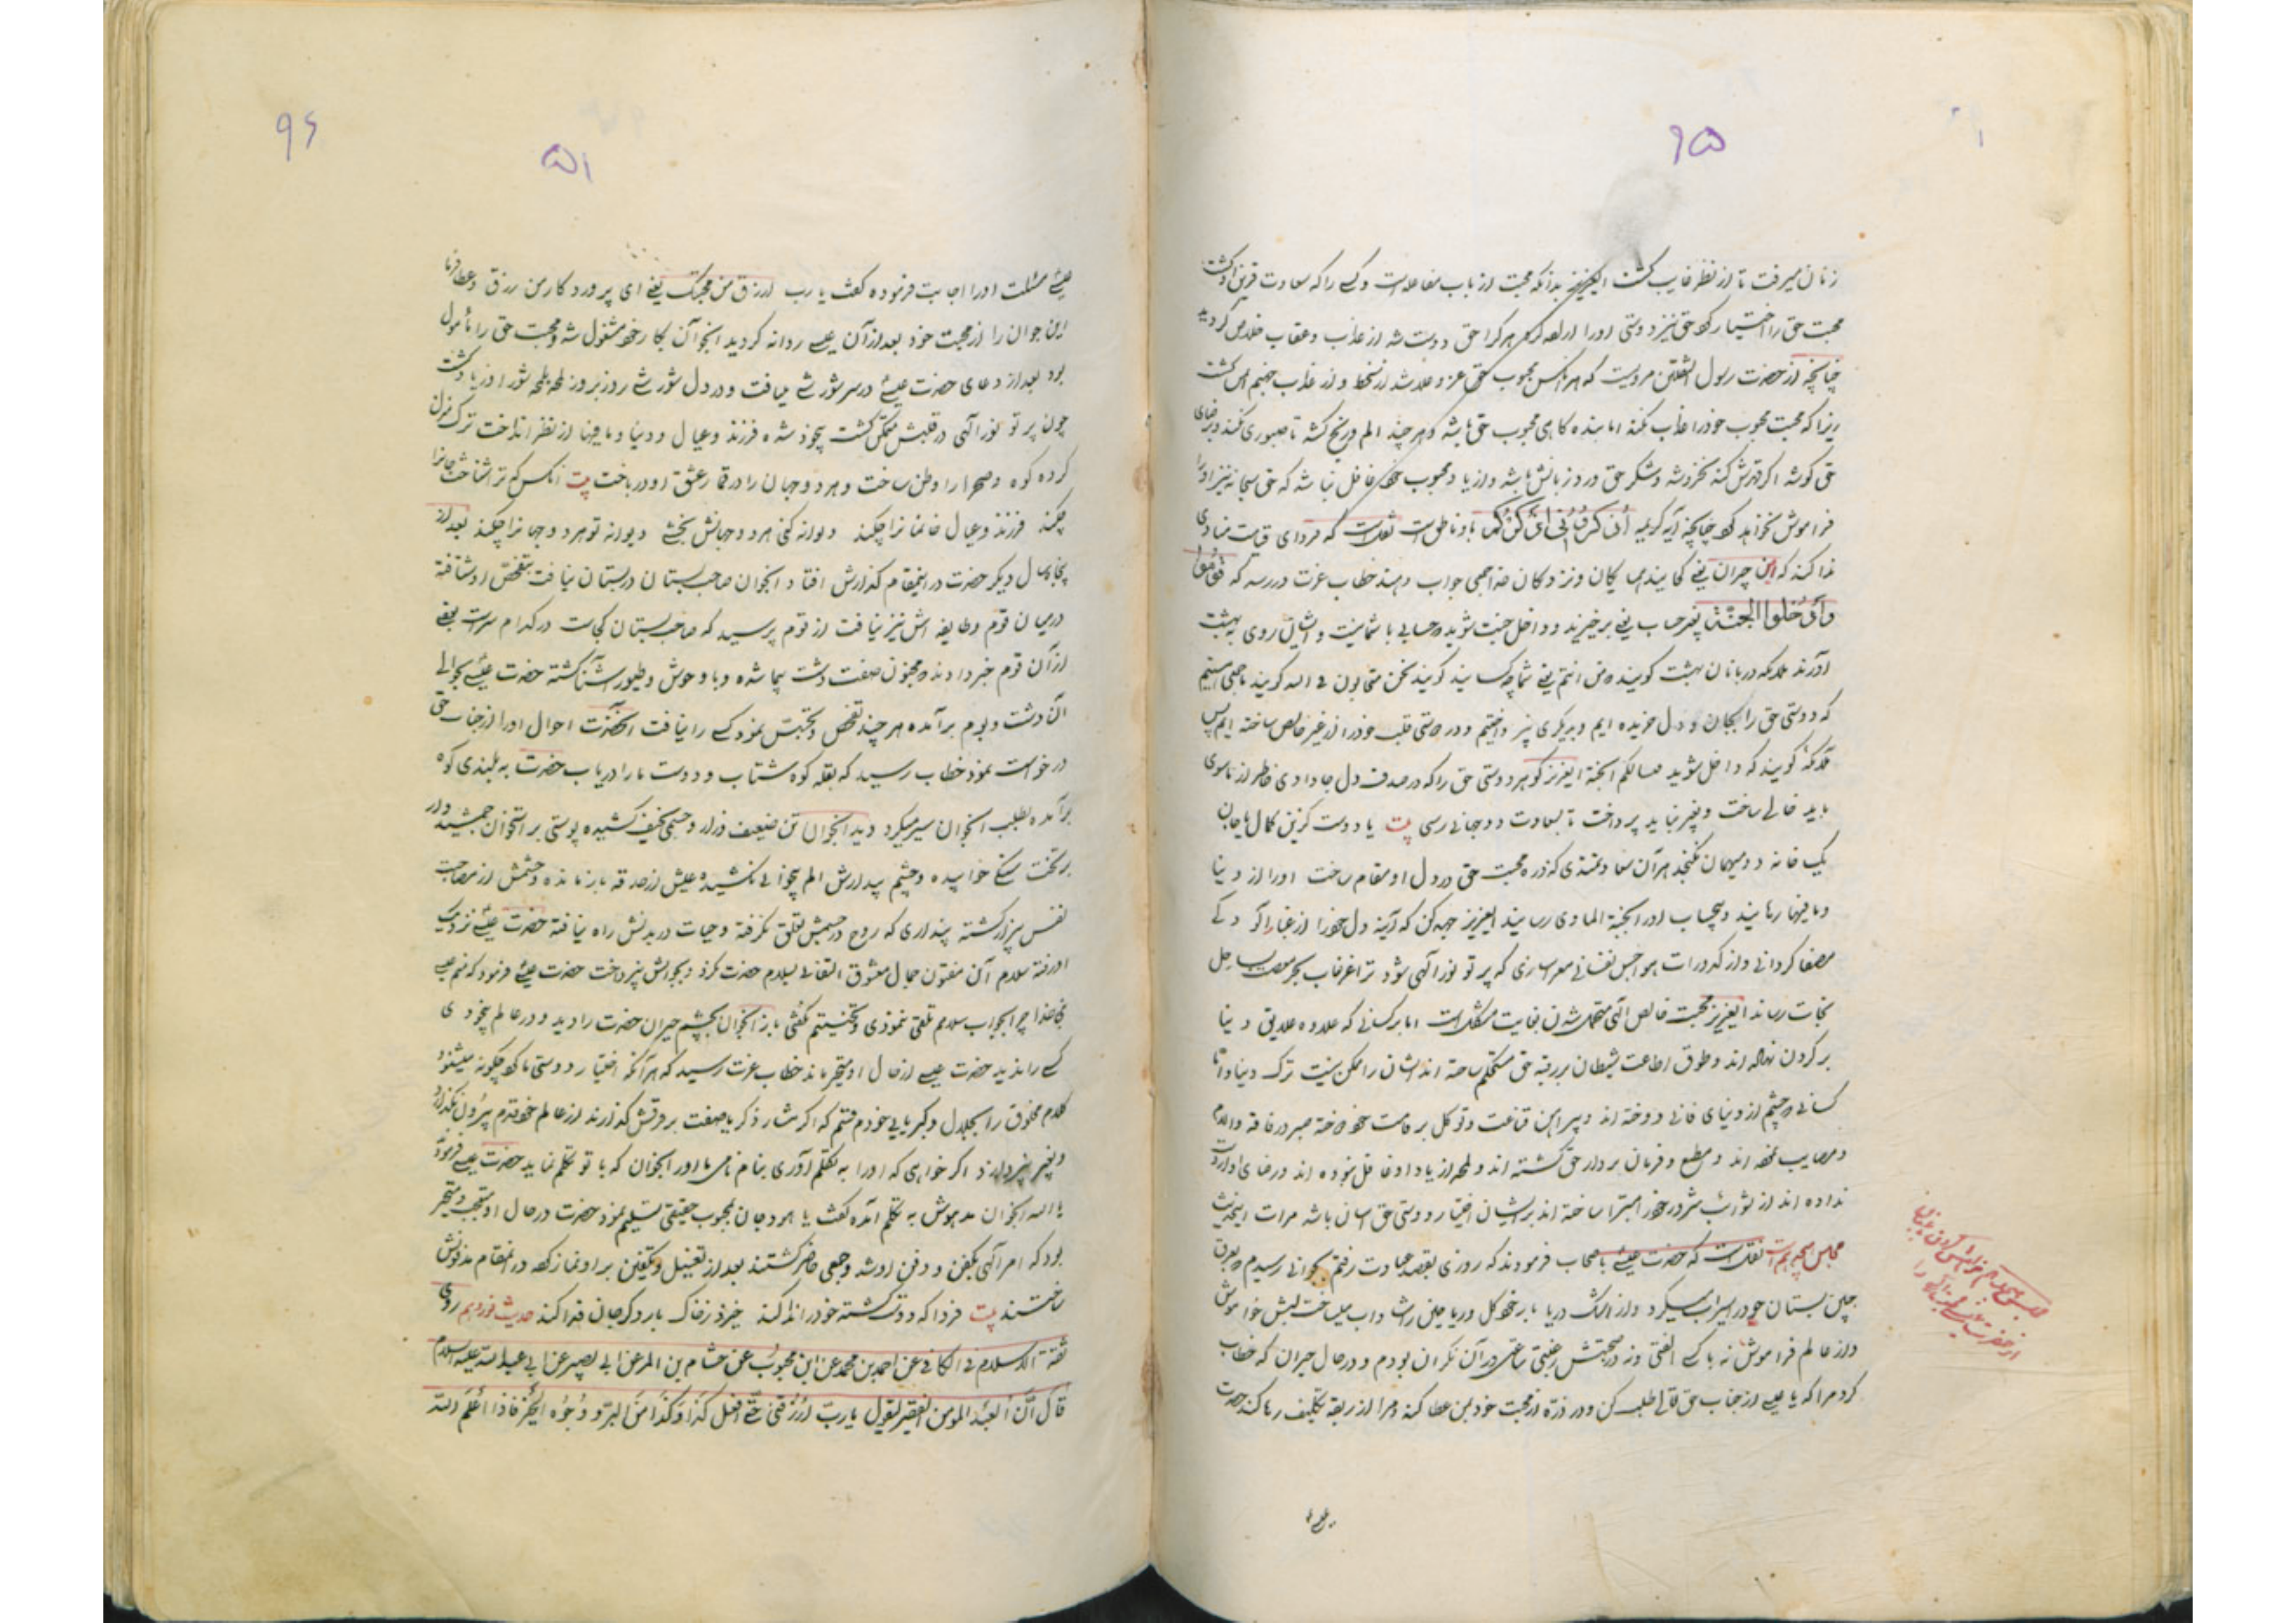 ۹۵
زنان میرفت تا از نظر غایب گشت ایعزیز بدانکه محبت از باب مفاعله است و کسی را که سعادت قرین او گشت
محبت حق را اختیار کرد حق نیز دوستی او را هر کرا حق دوست شد از عذاب و عقاب خلاص گردید
چنانچه از حضرت رسول الثقلین مرویست که هر انکس محبوب حق عز و علا شد از سخط و از عذاب جهنم ایمن گشت
زیرا که محبت محبوب خود را عذاب نکند اما بنده گاهی محبوب حق باشد و هر چند الم و رنج کشد تا صبوری کند و برضای
حق کوشد اگر قهرش کند نخروشد و شکر حق ورد زبانش باشد و از یاد محبوب خود غافل نباشد که حق سبحانه نیز او را
فراموش نخواهد کرد چنانچه آیه کریمه اذکرونی اذکرکم باو ناطق است نقلست که فردای قیامت منادی
ندا کند که این جیران یعنی کجایند همسایگان و نزدیکان خدا جمعی جواب دهند خطاب عزت در رسد که قوموا
وادخلوا الجنة بغیر حساب یعنی برخیزید و داخل جنت شوید حسابی با شما نیست و ایشان روی به بهشت
آورند ملائکه دربانان بهشت گویند من انتم یعنی شما چه کسانید گویند نحن متحابون فی الله گویند ما جمعی هستیم
که دوستی حق را بجان و دل خریده ایم و بدیگری نپرداختیم و در دوستی قلب خود را از غیر خالص ساخته ایم پس
ملائکه گویند که داخل شوید مسالکم الجنة ایعزیز گوهر دوستی حق را که در صدف دل جا دادی خاطر از ماسوی
باید خالی ساخت و بغیر نباید پرداخت تا بسعادت دو جهانی رسی بیت یا دوست گزین کمال یا جان
یک خانه دو میهمان نگنجد هر آن سعادتمندی که ذره محبت حق در دل او مقام ساخت او را از دنیا
و مافیها رهانید و بیحساب او را بجنة الماوی رسانید ایعزیز جهد کن که آینه دل خود را از غبار
مصفا گردانی و از کدورات هواجس نفسانی معرا سازی که پرتو نور الهی شود ترا از غرقاب بحر بساحل
نجات رساند ایعزیز محبت خالص الهی متحمل شدن بغایت مشکلست اما بر کسانی که قلاده علایق دنیا
بر گردن نهاده اند و طوق اطاعت شیطان بر رقبه حق مستحکم ساخته اند ایشان را ممکن نیست ترک دنیا و اما
کسانی که چشم از دنیای فانی دوخته اند و پیراهن قناعت و توکل بر قامت خود دوخته صبر در فاقه و آلام
و مصایب نموده اند و مطیع و فرمان بردار حق گشته اند و لمحه از یاد او غافل نبوده اند و رضای او از دست
نداده اند از شرور خود را مبرا ساخته اند بر ایشان اختیار دوستی حق آسان باشد
مجلس نقلست که حضرت عیسی باصحاب فرمودند که روزی بقصد عبادت رفتم بجوانی رسیدم که بعرق
جبین بستان خود را سیراب میکرد و از اشک دریا بار خود گل و ریاحین را شاداب میساخت لبش خاموش
و از عالم فراموش نه با کسی الفتی و نه در صحبتش رغبتی ساعتی در آن نگران بودم و در حال حیران که خطاب
کرد مرا که یا عیسی از جناب حق تعالی طلب کن که ذره از محبت خود بمن عطا کند و مرا از ربقه تکلیف رها کند حضرت
عیسی
۹۶
۵۱
عیسی مسئلت او را اجابت فرموده گفت یا رب ارزق من محبتک یعنی ای پروردگار من رزق و عطا فرما
این جوان را از محبت خود بعد از آن عیسی روانه گردید انجوان بکار خود مشغول شد و محبت حق را مأمول
بود بعد از دعای حضرت عیسی در سر شورشی میافت و در دل شورشی روز بروز لمحه بلمحه شور او زیاد گشت
چون پرتو نور الهی در قلبش متمکن گشت بیخود شده فرزند و عیال و دنیا و مافیها از نظر انداخت ترک منزل
کرده کوه و صحرا را وطن ساخت و هر دو جهان را در قمار عشق او درباخت بیت انکس که ترا شناخت جانرا
چکند فرزند و عیال و خانمانرا چکند دیوانه کنی هر دو جهانش بخشی دیوانه تو هر دو جهانرا چکند بعد از
پنجاه سال دیگر حضرت در اینمقام گذارش افتاد انجوان صاحب بستان در بستان نیافت بتفحص او شتافته
در میان قوم و طایفه اش نیز نیافت از قوم پرسید که صاحب بستان کجاست در کدام سراست بعضی
از آن قوم خبر دادند که مجنون صفت دشت پیما شده و با وحوش و طیور آشنا گشته حضرت عیسی بحوالی
آن دشت و بوم برآمده هر چند تفحص و تجسس نمود کسی را نیافت آنحضرت احوال او را از جناب حق
درخواست نمود خطاب رسید که بقله کوه شتاب و دوست ما را دریاب حضرت به بلندی کوه
برآمده بطلب انجوان سیر میکرد دید انجوان تن ضعیف و زار و جسمی نحیف کشیده پوستی بر استخوان
بر تخت سنگی خوابیده و چشم بیدارش الم بیخوابی نکشیده از حدقه باز مانده و چشمش از مصاحبت
نفس بیزار گشته پنداری که روح در جسمش تعلق نگرفته و حیات در بدنش راه نیافته حضرت عیسی نزدیک
او رفته سلام آن مفتون جمال معشوق التفاتی بسلام حضرت نکرد و بجوابش نپرداخت حضرت عیسی فرمود که منم عیسی
نبی خدا چرا بجواب سلامم تلقی ننمودی و تحیتم نگفتی باز انجوان بچشم حیران حضرت را دید و در عالم بیخودی
کسی را ندید حضرت عیسی از حال او متحیر ماند خطاب عزت رسید که هر آنکه اختیار دوستی ما کرد چگونه میشنود
کلام مخلوق را بجلال و کبریایی خودم قسم که اگر منشار ذکریا صفت بر فرقش گذارند از عالم خود قدم بیرون نگذارد
و بغیر نپردازد اگر خواهی که او را به تکلم آوری بنام ما اور انجوان که با تو تکلم نماید حضرت عیسی فرمود
یا الله انجوان مدهوش به تکلم آمده گفت یا هو و جان بمحبوب حقیقی تسلیم نمود حضرت در حال او متعجب و متحیر
بود که امر الهی بکفن و دفن او شد و جمعی حاضر گشتند بعد از تغسیل و تکفین بر او نماز کرد در انمقام مدفونش
ساختند بیت فردا که دوست کشته خود را ندا کند خیزد ز خاک بار دگر جان فدا کند حدیث نوزدهم روی
ثقة الاسلام فی الکافی عن احمد بن محمد عن ابن محبوب عن هشام بن المر عن ابی بصیر عن ابی عبدالله علیه السلام
قال ان العبد المومن الفقیر لیقول یا رب ارزقنی حتی افعل کذا و کذا من البر و وجوه الخیر فاذا علم الله